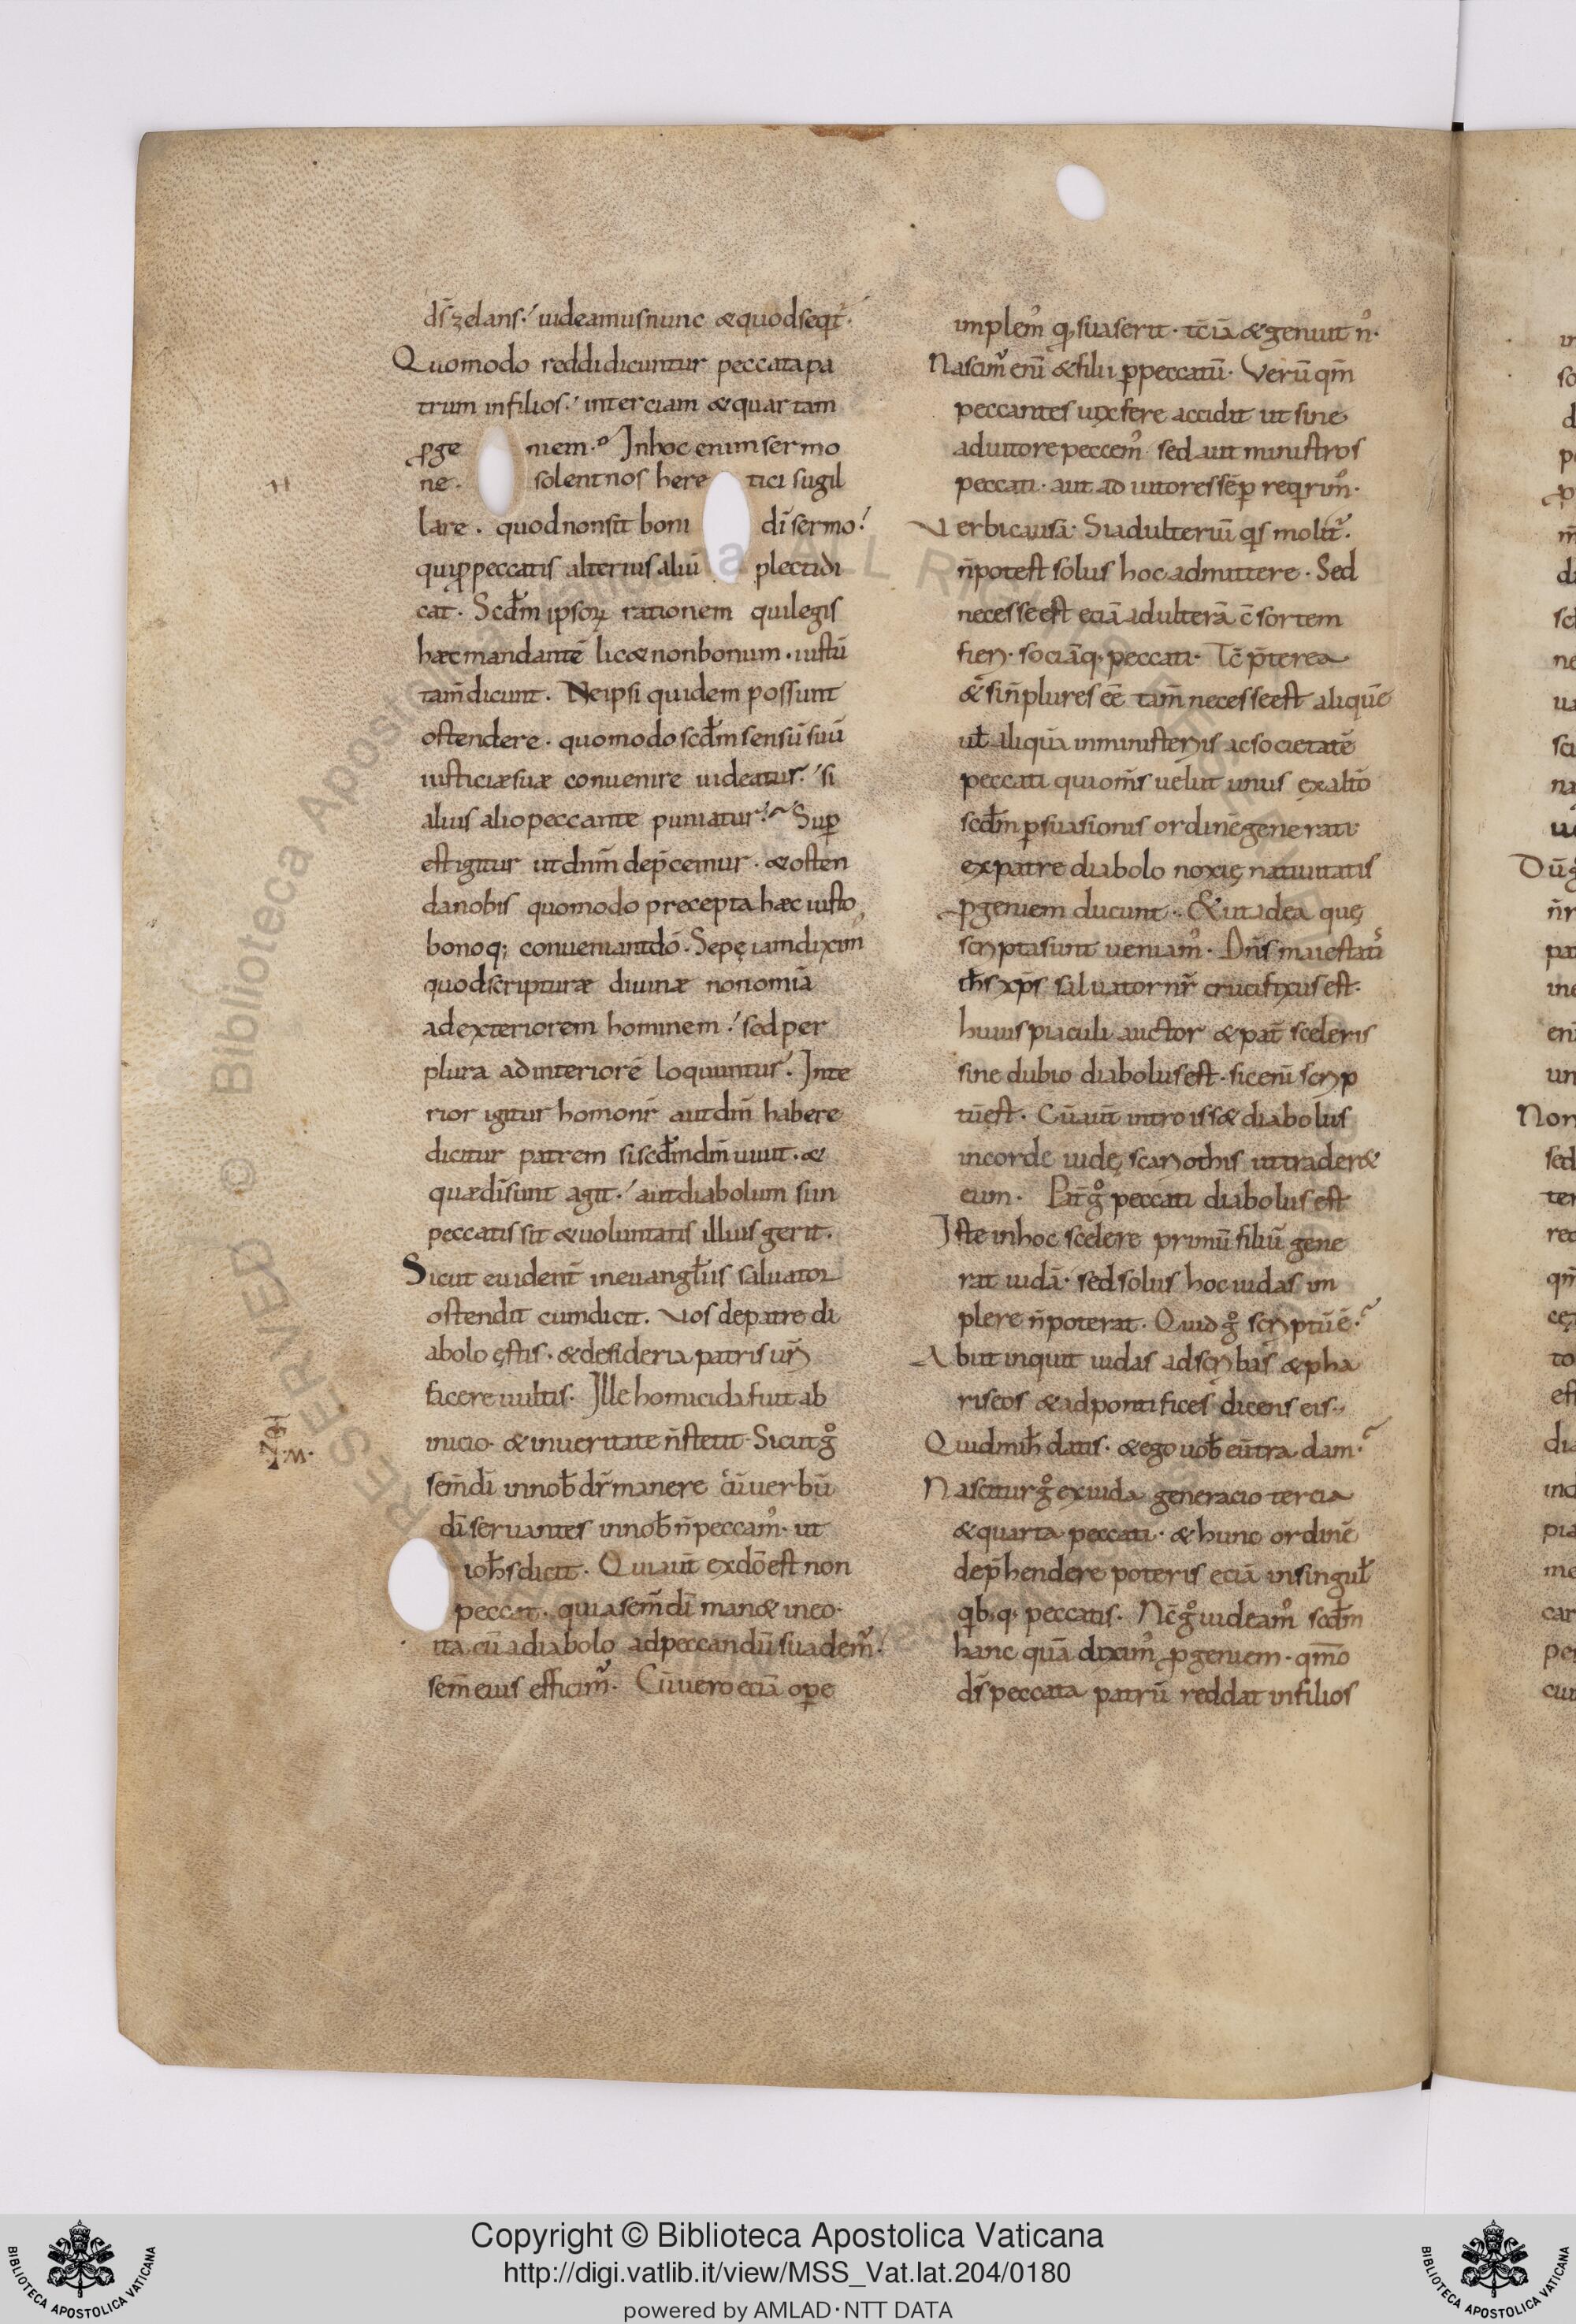 ds̄ zelans·' uideamus nunc & quod seqt̄·
Quomodo reddi dicuntur peccata pa
trum in filios·' in terciam & quartam
ꝓge niem·° In hoc enim sermo
ne· solent nos here tici sugil
lare· quod non sit boni dī sermo!
qui ꝓ peccatis alterius aliū plecti di
cat· Scd̄m ipsoꝝ rationem qui legis
hæc mandantē lic& non bonum· iustū
tam̄ dicunt. Ne ipsi quidem possunt
ostendere· quomodo scd̄m sensū suū
iusticiæ suæ conuenire uideatur·' si
alius alio peccante puniatur·'~ Suꝑ
est igitur ut dnm̄ dep̄cemur· & osten
da nobis quomodo precepta hæc iusto
bonoq; conueniant dō· Sepę iam diximꝰ
quod scripturæ diuinæ non om̄ia
ad exteriorem hominem·' sed per
plura ad interiorē loquuntur·' Inte
rior igitur homo nr̄ aut dm̄ habere
dicitur patrem si scd̄m dm̄ uiuit· &
quæ dī sunt agit·' aut diabolum si in
peccatis sit & uoluntatis illius gerit.
Sicut euident̄ in euangl̄iis saluator
ostendit cum dicit. Vos de patre di
abolo ęstis· & desideria patris ur̄i
facere uultis· Ille homicida fuit ab
inicio· & in ueritate n̄ stetit· Sicut gͦ
sem̄ dī in nob̄ dr̄ manere cū uerbū
dī seruantes in nob̄ n̄ peccamꝰ· ut
ioh̄s dicit· Qui aūt ex dō est non
peccat· quia sem̄ dī man& in eo·
ita cū a diabolo ad peccandū suademꝰ·
sem̄ eius efficimꝰ· Cū uero eciā oꝑe
implemꝰ qḍ suaserit· tc̄ iā & genuit nꝰ·
Nascimꝰ enī & filii ꝑ peccatū· Verū qm̄
peccantes uix fere accidit ut sine
adiutore peccemꝰ sed aut ministros
peccati· aut adiutores sēꝑ reqrimꝰ·
Verbi causā· Si adulteriū qis molit̄·
n̄ potest solus hoc admittere· Sed
necesse est eciā adulterā c̄sortem
fieri· sociāq· peccati· Tc̄ p̄terea
& si n̄ plures eē tam̄ necesse est aliquē
ul̄ aliquā in ministeriis ac societatē
peccati qui om̄s uelut unus ex alt̄o
scd̄m ꝑsuasionis ordinē generati
ex patre diabolo noxię natiuitatis
ꝓgeniem ducunt· & ut ad ea quę
scripta sunt ueniamꝰ· Dn̄s maiestatis
ih̄s xp̄s saluator nr̄ crucifixus est·
huius piaculi auctor & pat̄ sceleris
sine dubio diabolus est· sic enī scrip
tū ęst· Cū aūt introiss& diabolus
in corde iudę scariothis ut trader&
eum· Pat̄ gͦ peccati diabolus est
Iste in hoc scelere primū filiū gene
rat iudā· sed solus hoc iudas im
plere n̄ poterat· Quid gͦ scriptū ē·~
Abiit inquit iudas ad scribas & pha
riseos & ad pontifices dicens eis·
Quid mih̄ datis· & ego uob̄ eūtradam·~
Nascitur gͦ ex iuda generacio tercia
& quarta peccati· & hunc ordinē
dep̄hendere poteris eciā in singul̄
qb·q· peccatis· Nc̄ gͦ uideamꝰ scd̄m
hanc quā diximꝰ ꝓgeniem· qm̄o
ds̄ peccata patrū reddat in filios
Copyright © Biblioteca Apostolica Vaticana
http://digi.vatlib.it/view/MSS_Vat.lat.204/0180
powered by AMLAD·NTT DATA